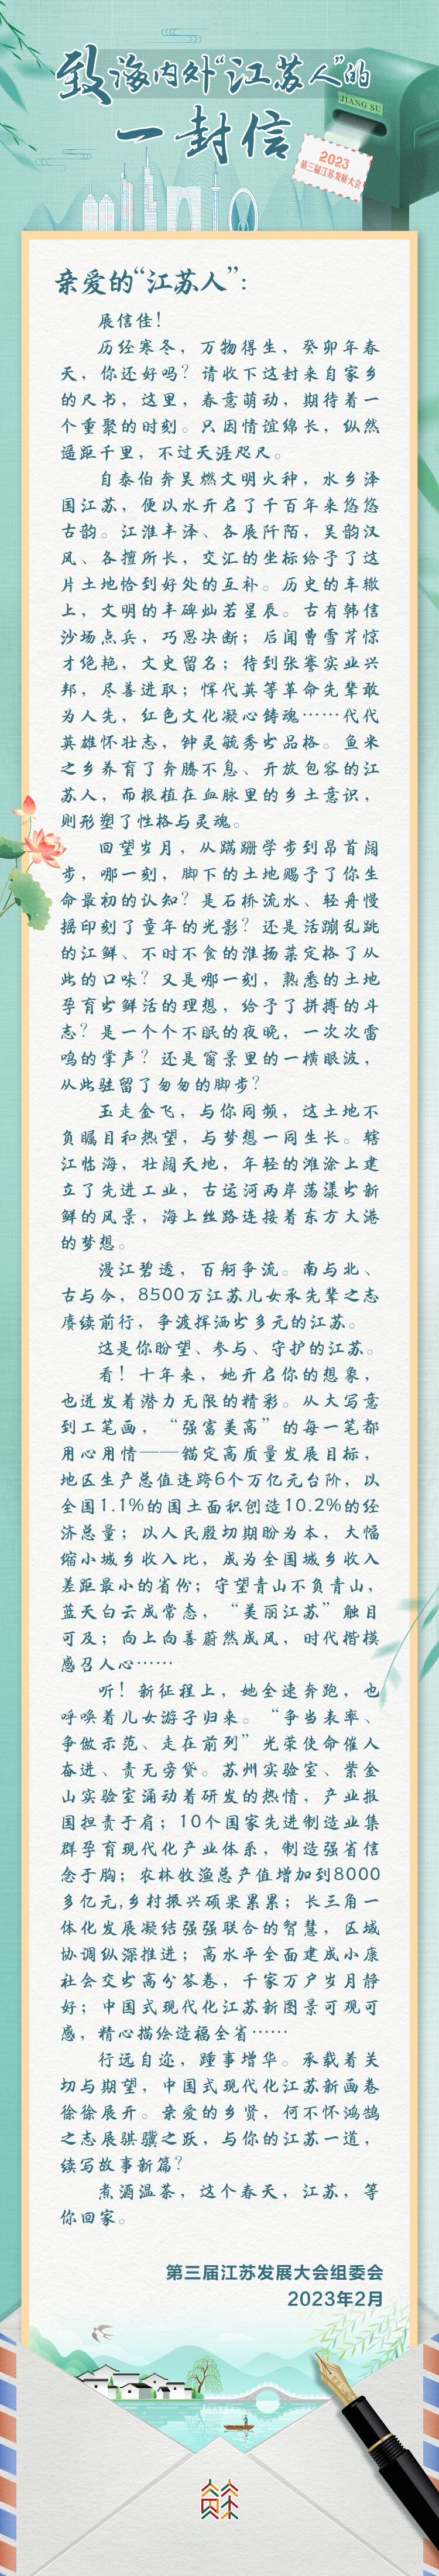 致海内外“江苏人”的
一封信
JIANG SU
2023
第三届江苏发展大会
亲爱的“江苏人”：
展信佳！
历经寒冬，万物得生，癸卯年春
天，你还好吗？请收下这封来自家乡
的尺书，这里，春意萌动，期待着一
个重聚的时刻。只因情谊绵长，纵然
遥距千里，不过天涯咫尺。
自泰伯奔吴燃文明火种，水乡泽
国江苏，便以水开启了千百年来悠悠
古韵。江淮丰泽、各展阡陌，吴韵汉
风、各擅所长，交汇的坐标给予了这
片土地恰到好处的互补。历史的车辙
上，文明的丰碑灿若星辰。古有韩信
沙场点兵，巧思决断；后闻曹雪芹惊
才绝艳，文史留名；待到张謇实业兴
邦，尽善进取；恽代英等革命先辈敢
为人先，红色文化凝心铸魂……代代
英雄怀壮志，钟灵毓秀出品格。鱼米
之乡养育了奔腾不息、开放包容的江
苏人，而根植在血脉里的乡土意识，
则形塑了性格与灵魂。
回望岁月，从蹒跚学步到昂首阔
步，哪一刻，脚下的土地赐予了你生
命最初的认知？是石桥流水、轻舟慢
摇印刻了童年的光影？还是活蹦乱跳
的江鲜、不时不食的淮扬菜定格了从
此的口味？又是哪一刻，熟悉的土地
孕育出鲜活的理想，给予了拼搏的斗
志？是一个个不眠的夜晚，一次次雷
鸣的掌声？还是窗景里的一横眼波，
从此驻留了匆匆的脚步？
玉走金飞，与你同频，这土地不
负瞩目和热望，与梦想一同生长。辖
江临海，壮阔天地，年轻的滩涂上建
立了先进工业，古运河两岸荡漾出新
鲜的风景，海上丝路连接着东方大港
的梦想。
漫江碧透，百舸争流。南与北、
古与今，8500万江苏儿女承先辈之志
赓续前行，争波挥洒出多元的江苏。
这是你盼望、参与、守护的江苏。
看！十年来，她开启你的想象，
也迸发着潜力无限的精彩。从大写意
到工笔画，“强富美高”的每一笔都
用心用情——锚定高质量发展目标，
地区生产总值连跨6个万亿元台阶，以
全国1.1%的国土面积创造10.2%的经
济总量；以人民殷切期盼为本，大幅
缩小城乡收入比，成为全国城乡收入
差距最小的省份；守望青山不负青山，
蓝天白云成常态，“美丽江苏”触目
可及；向上向善蔚然成风，时代楷模
感召人心……
听！新征程上，她全速奔跑，也
呼唤着儿女游子归来。“争当表率、
争做示范、走在前列”光荣使命催人
奋进、责无旁贷。苏州实验室、紫金
山实验室涌动着研发的热情，产业报
国担责于肩；10个国家先进制造业集
群孕育现代化产业体系，制造强省信
念于胸；农林牧渔总产值增加到8000
多亿元,乡村振兴硕果累累；长三角一
体化发展凝结强强联合的智慧，区域
协调纵深推进；高水平全面建成小康
社会交出高分答卷，千家万户岁月静
好；中国式现代化江苏新图景可观可
感，精心描绘造福全省……
行远自迩，踵事增华。承载着关
切与期望，中国式现代化江苏新画卷
徐徐展开。亲爱的乡贤，何不怀鸿鹄
之志展骐骥之跃，与你的江苏一道，
续写故事新篇？
煮酒温茶，这个春天，江苏，等
你回家。
第三届江苏发展大会组委会
2023年2月